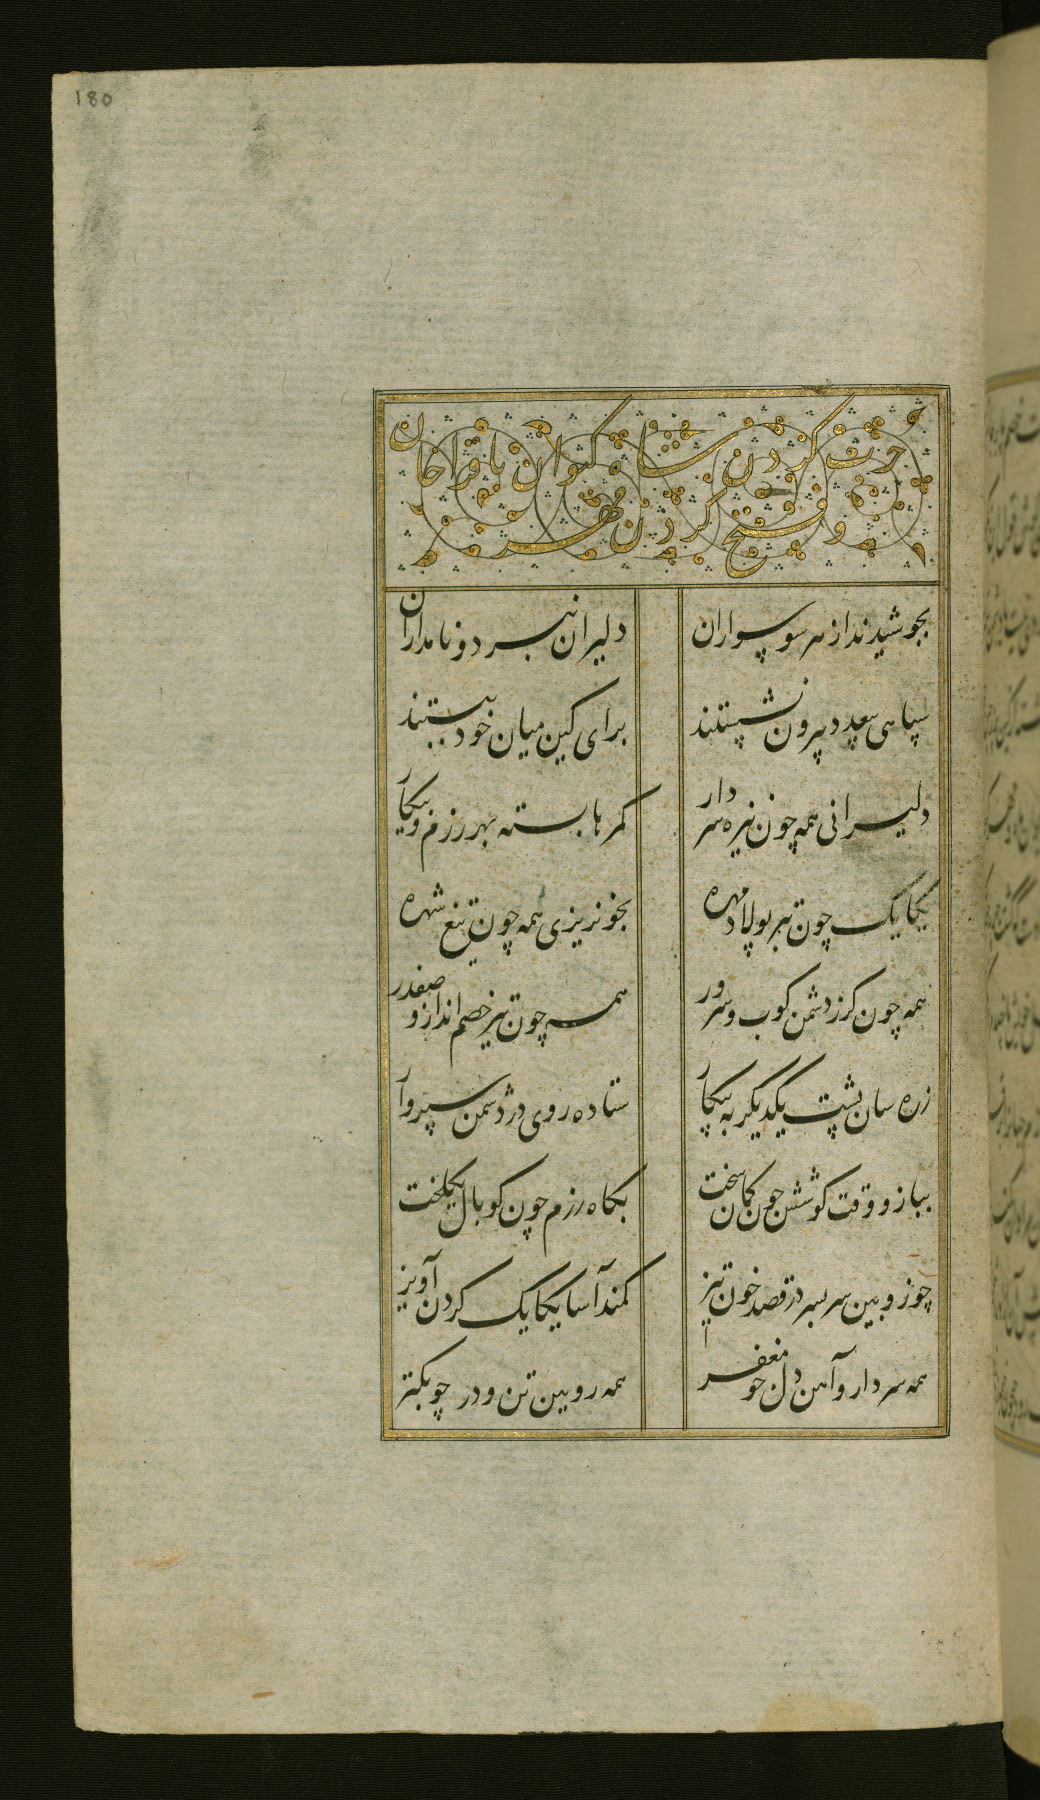 180
حرب کردن شاه کیوان با قراخان
و فتح کردن مهر
بجوشیدند از هر سو سواران
دلیران نبرد و نامداران
سپاهی بیعدد بیرون نشستند
برای کین میان خود ببستند
دلیرانی همه چون نیزه سردار
کمرها بسته بهر رزم و پیکار
یکایک چون تبر پولاد مهره
بخونریزی همه چون تیغ شهره
همه چون کرز دشمن کوب و سرور
همه چون تیر خصم انداز و صفدر
زره سان پشت یکدیگر به پیکار
ستاده روی در دشمن سپروار
ببازو وقت کوشش چون کمان سخت
بکاه رزم چون کوپال یکلخت
چو زوبین سر بسر در قصد خون تیز
کمند آسا یکایک کردن آویز
همه سردار و آهن دل چو مغفر
همه رویین تن و در چو بکتر